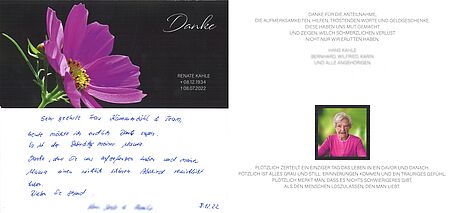 Danke
RENATE KAHLE
* 08.12.1934
† 08.07.2022
Sehr geehrte Frau & Team,
heute möchte ich endlich Danke sagen.
Es ist der Geburtstag meiner Mama
Danke, das Sie uns aufgefangen haben und meine
Mama einen wirklich schönen Abschied
haben.
8.12.22
DANKE FÜR DIE ANTEILNAHME,
DIE AUFMERKSAMKEITEN, HILFEN, TRÖSTENDEN WORTE UND GELDGESCHENKE.
DIESE HABEN UNS MUT GEMACHT
UND ZEIGEN, WELCH SCHMERZLICHEN VERLUST
NICHT NUR WIR ERLITTEN HABEN.
HANS KAHLE
BERNHARD, WILFRIED, KARIN
UND ALLE ANGEHÖRIGEN.
PLÖTZLICH ZERTEILT EIN EINZIGER TAG DAS LEBEN IN EIN DAVOR UND DANACH.
PLÖTZLICH IST ALLES GRAU UND STILL. ERINNERUNGEN KOMMEN UND EIN TRAURIGES GEFÜHL.
PLÖTZLICH MERKT MAN, DASS ES NICHTS SCHWIERIGERES GIBT,
ALS DEN MENSCHEN LOSZULASSEN, DEN MAN LIEBT.